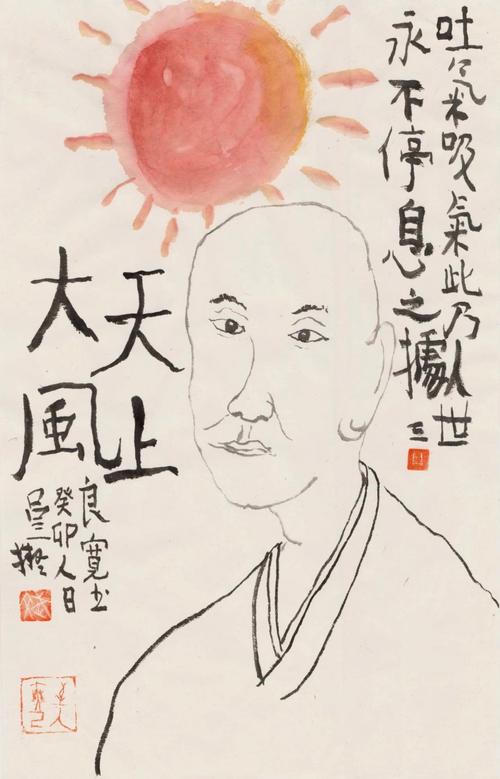 吐氣吸氣此乃人世
永不停息之據
三
天上
大風
良寬书
癸卯人日
吕三